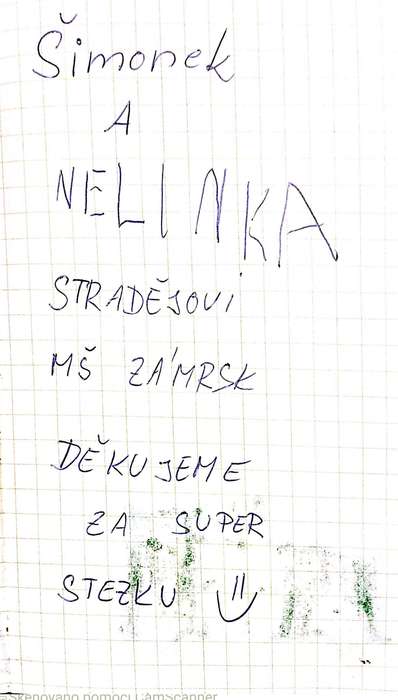 Šimonek
A
NELINKA
STRADĚJOVI
MŠ ZÁMRSK
DĚKUJEME
ZA SUPER
STEZKU
Skenováno pomocí CamScanner